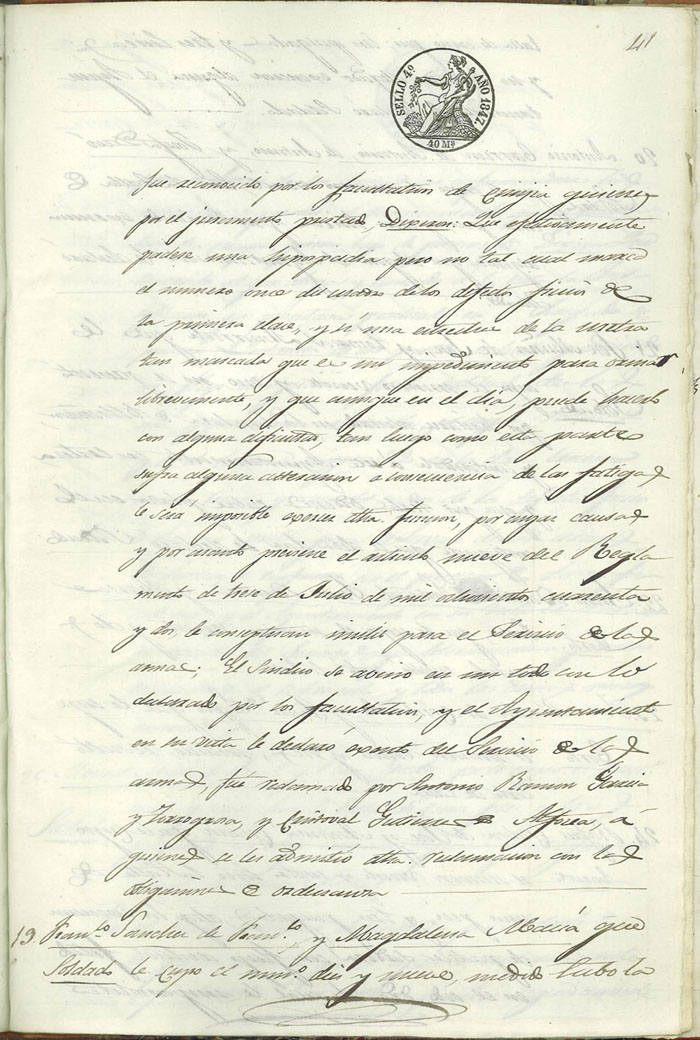 41
SELLO 4º AÑO 1847.
40 Ms
fue reconocido por los facultativos de cirujia quienes
por el juramento prestado, Dijeron: Que efectivamente
padece una hipospadia pero no tal cual marca
el numero once del cuadro de los defectos fisicos de
la primera clase, y si una estrechez de la uretra
tan marcada que es un impedimento para orinar
libremente, y que aunque en el dia, puede hacerlo
con alguna dificultad, tan luego como esta parte
sufra alguna alteracion a consecuencia de las fatigas
le será imposible exercer dha. funcion, por cuyas causas
y por cuanto previene el articulo nueve del Regla
mento de trese de Julio de mil ochocientos cuarenta
y dos, le conseptuan inutil para el Servicio de las
armas. El Sindico se avino en un todo con lo
declarado por los facultativos, y el Ayuntamiento
en su vista le declaró exento del Servicio de las
armas, fue reclamado por Antonio Ramon Garcia
y Zaragosa, y Cristoval Gutierres, á
quienes se les admitió dha. reclamacion con las
de ordenanza
19. Franco. Sanchez de Franco., y Magdalena Maciá que
Soldado le cupo el numo. dies y nueve, medido tubo la